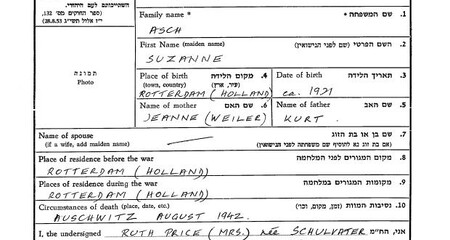 השתייכותם לעם היהודי.
(ספר החוקים מס' 132,
י"ז אלול תשי"ג 28.8.53)
Family name *
1. שם המשפחה *
ASCH
First Name (maiden name)
2. השם הפרטי (שם לפני הנישואין)
SUZANNE
תמונה
Photo
Place of birth
(town, country)
4. מקום הלידה
(עיר, ארץ)
Date of birth
3. תאריך הלידה
ROTTERDAM (HOLLAND)
ca. 1921
Name of mother
6. שם האם
Name of father
5. שם האב
JEANNE (WEILER)
KURT.
Name of spouse
(if a wife, add maiden name)
7. שם בן או בת הזוג
(אם בת זוג נא להוסיף שם משפחתה לפני הנישואין)
Place of residence before the war
8. מקום המגורים לפני המלחמה
ROTTERDAM (HOLLAND)
Places of residence during the war
9. מקומות המגורים במלחמה
ROTTERDAM (HOLLAND)
Circumstances of death (place, date, etc.)
10. נסיבות המוות (זמן, מקום, וכו')
AUSCHWITZ AUGUST 1942.
I, the undersigned RUTH PRICE (MRS.) née SCHULVATER אני, הח"מ